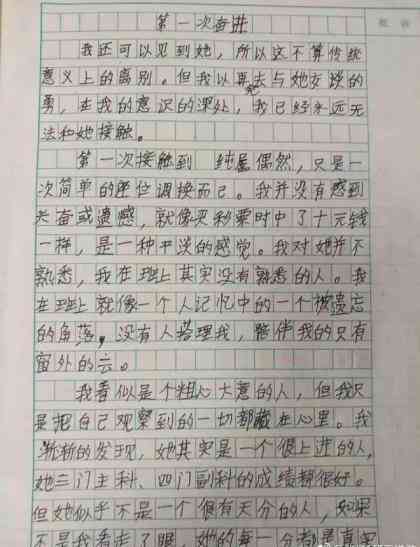 第一次奋进
我还可以见到她，所以这不算传统
意义上的离别。但我以再无去与她交谈的
勇，在我的意识的深处，我已经永远无
法和她接触。
第一次接触到 纯属偶然，只是一
次简单的座位调换而已。我并没有感到
兴奋或遗憾，就像买彩票时中了十元钱
一样，是一种平淡的感觉。我对她并不
熟悉，我在班上其实没有熟悉的人。我
在班上就像一个人记忆中的一个被遗忘
的角落，没有人搭理我，陪伴我的只有
窗外的云。
我看似是个粗心大意的人，但我只
是把自己观察到的一切都藏在心里。我
渐渐的发现，她其实是一个很上进的人，
她三门主科、四门副科的成绩都很好。
但她似乎不是一个很有天分的人，如果
不是我看走了眼，她的每一分都是真实